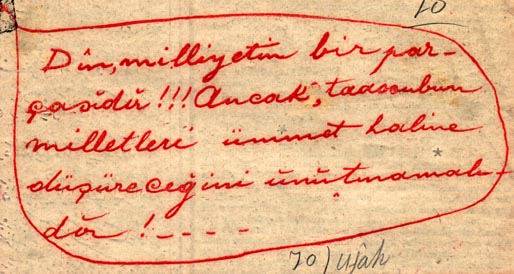 10
Din, milliyetin bir par-
çasıdır!!! Ancak, taassubun
milletleri ümmet haline
düşüreceğini unutmamalı-
dır!----
10)